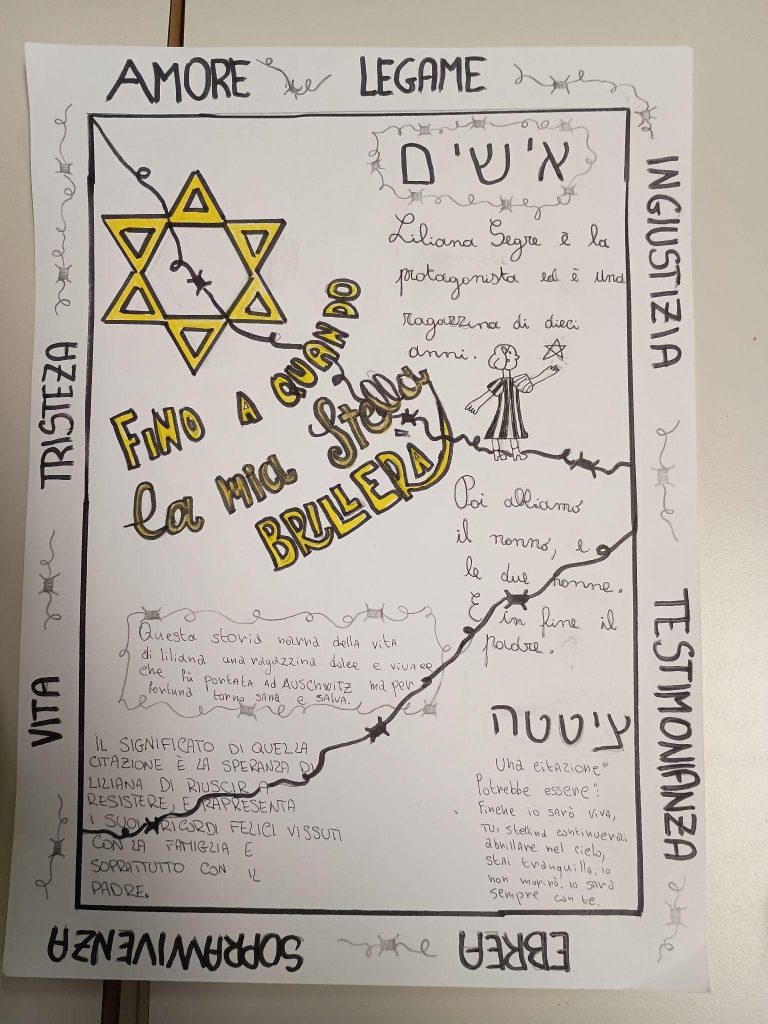 AMORE LEGAME
INGIUSTIZIA
TESTIMONIANZA
EBREA
SOPRAVVIVENZA
VITA
TRISTEZA
אישים
Liliana Segre è la
protagonista ed è una
ragazzina di dieci
anni.
FINO A QUANDO
la mia Stella
BRILLERÀ
Poi abbiamo
il nonno, e
le due nonne.
E in fine il
padre.
Questa storia narra della vita
di liliana una ragazzina dolce e vivace
che fù portata ad AUSCHWITZ ma per
fortuna torno sana e salva.
IL SIGNIFICATO DI QUELLA
CITAZIONE È LA SPERANZA DI
LILIANA DI RIUSCIR A
RESISTERE, E RAPPRESENTA
I SUOI RICORDI FELICI VISSUTI
CON LA FAMIGLIA E
SOPRATTUTTO CON IL
PADRE.
ציטטה
Una citazione
Potrebbe essere":
Finche io sarò viva,
tu, stellina continuerai
a brillare nel cielo,
stai tranquilla, io
non morirò, io sarò
sempre con te.